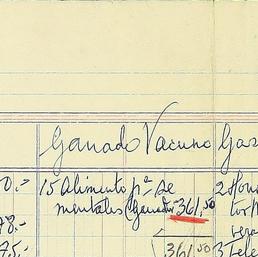 Ganado Vacuno Gas
0.- 15 Alimento pª se
mentales (Ganado 361,50
78.-
75.- 361,50 3 Tele